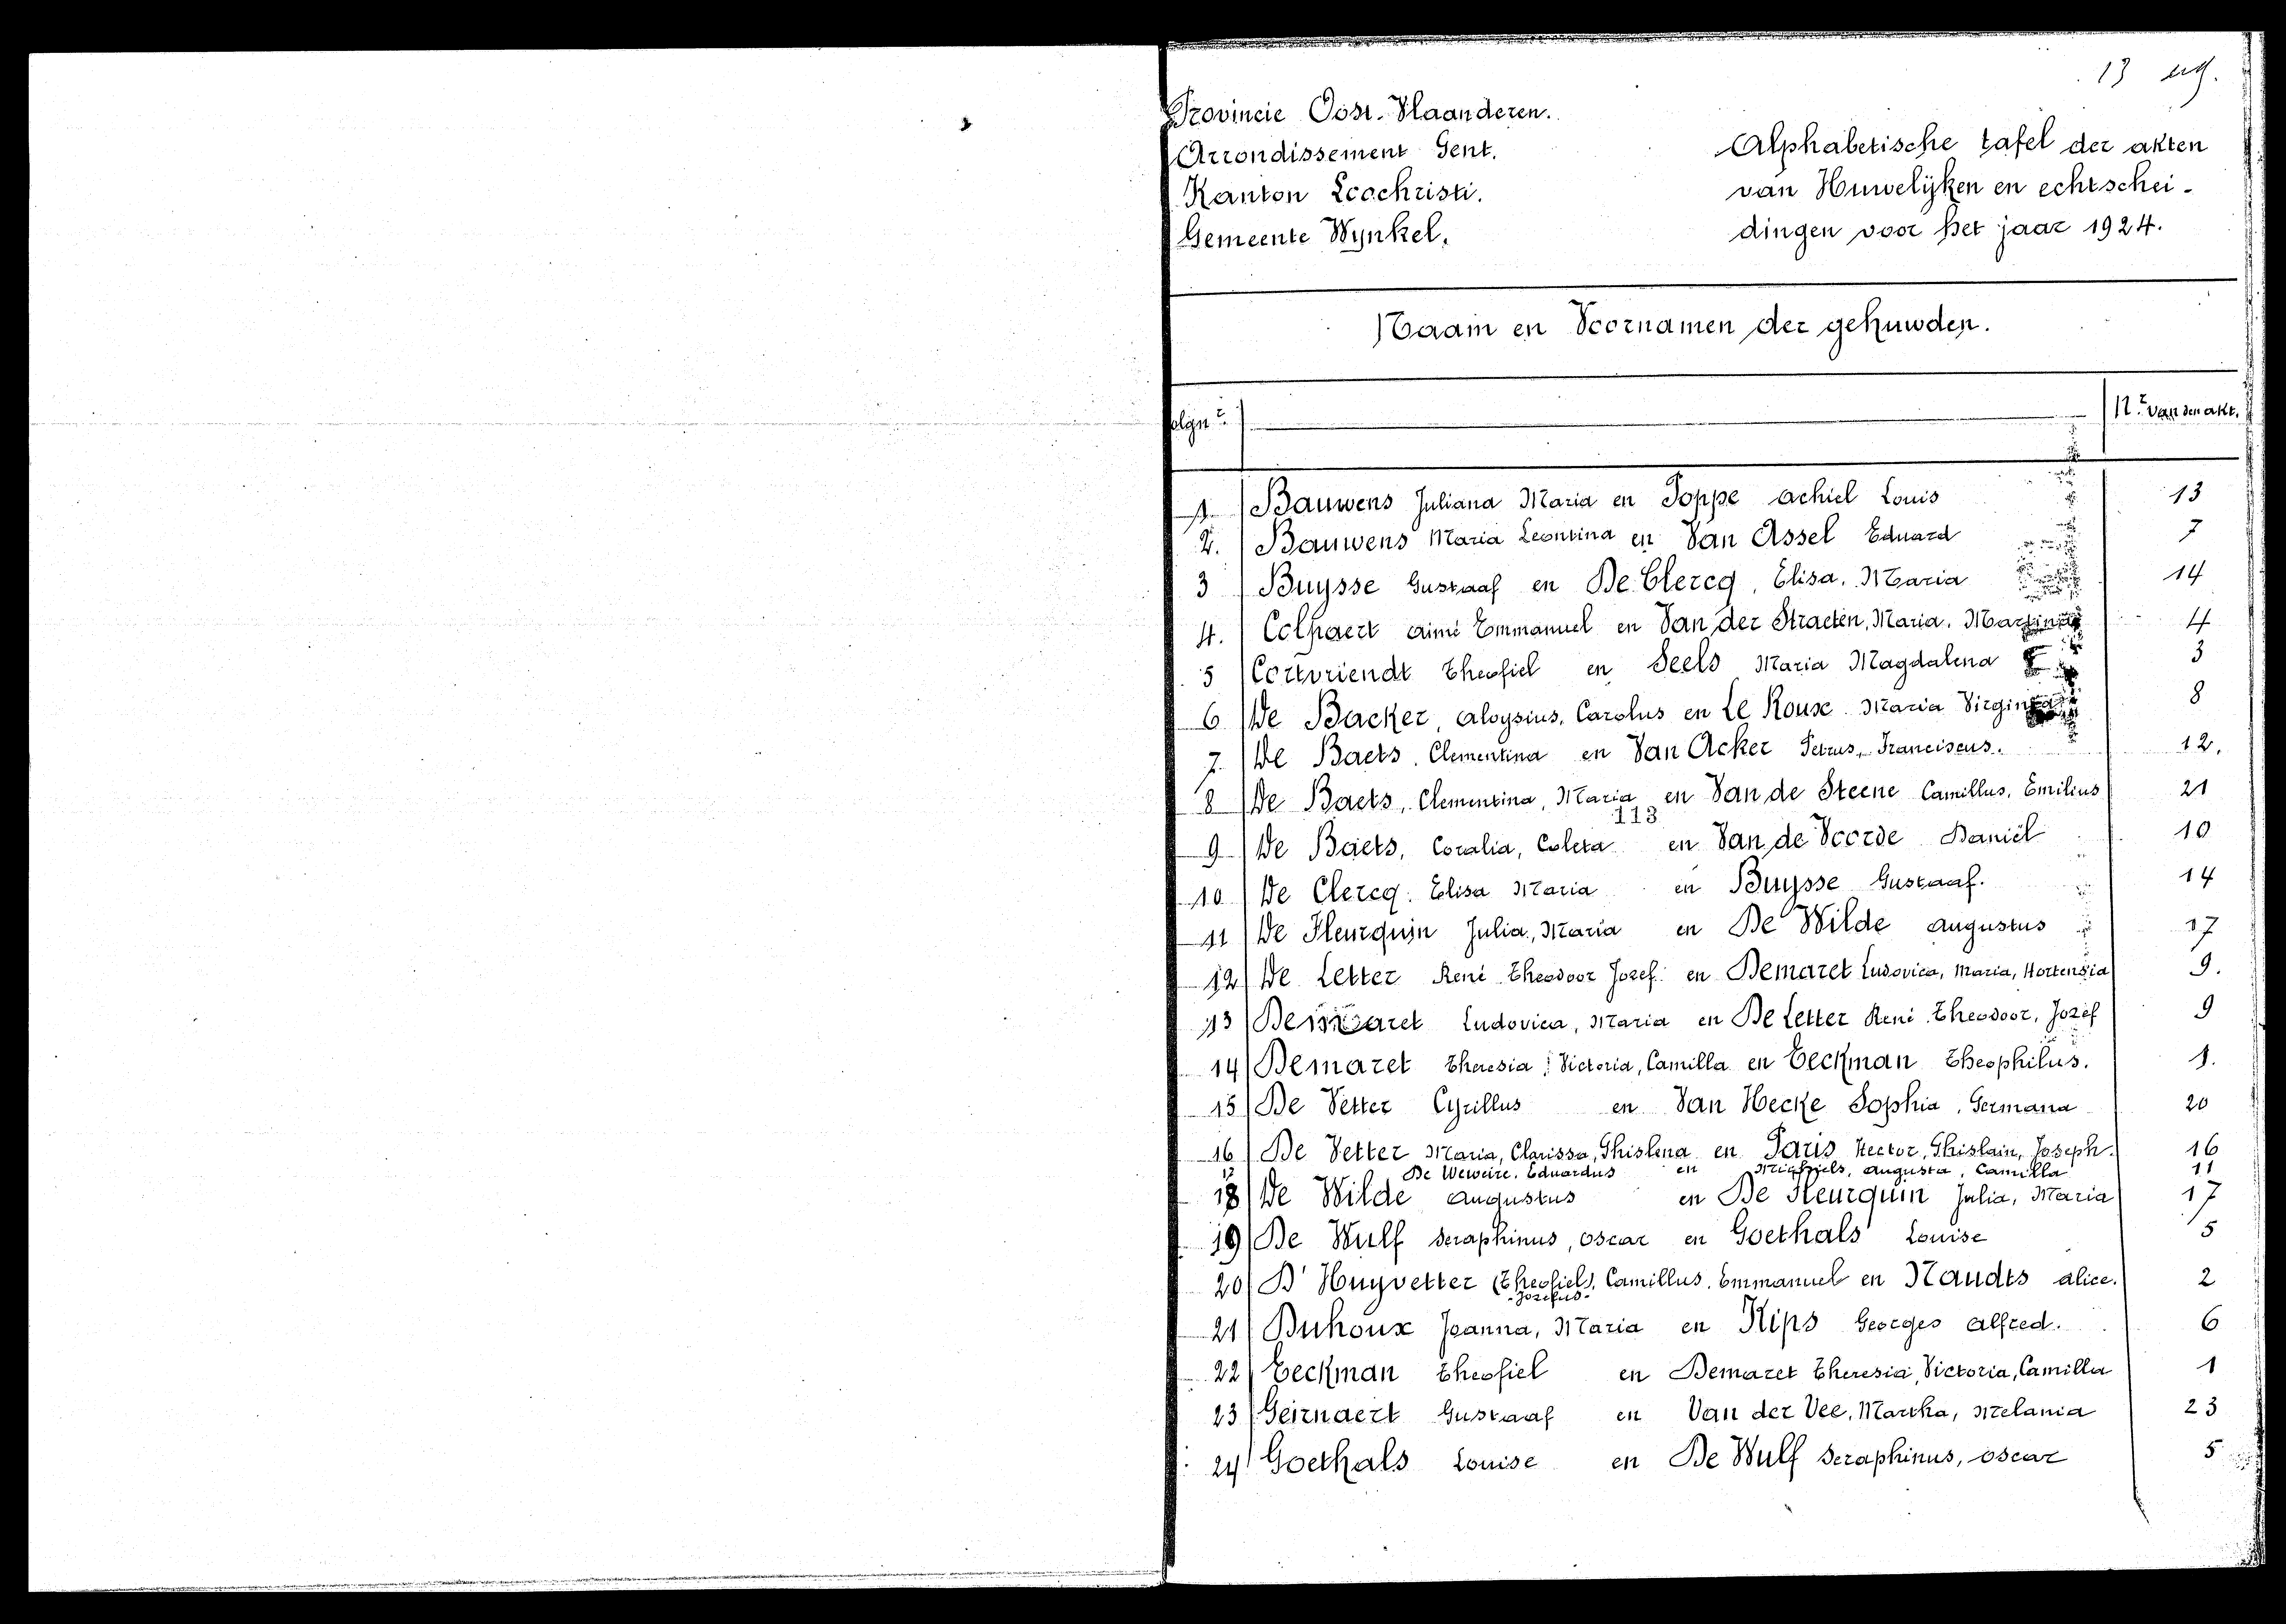 13 reg.
Provincie Oost-Vlaanderen.
Arrondissement Gent.
Kanton Loochristi.
Gemeente Wynkel.
Alphabetische tafel der akten
van Huwelijken en echtschei-
dingen voor het jaar 1924.
Naam en Voornamen der gehuwden.
olgnr Nr van den akt.
1 Bauwens Juliana Maria en Poppe achiel Louis 13
2. Bauwens Maria Leontina en Van Assel Eduard 7
3 Buysse Gustaaf en De Clercq, Elisa, Maria 14
4. Colpaert aimé Emmanuel en Van der Straeten, Maria, Martina 4
5 Cortvriendt Theofiel en Seels Maria Magdalena 3
6 De Backer, aloysius, Carolus en Le Roux Maria Virginia 8
7. De Baets, Clementina en Van Acker Petrus, Franciscus. 12.
8 De Baets, Clementina, Maria en Van de Steene Camillus, Emilius 21
113
9 De Baets, Coralia, Coleta en Van de Voorde Daniël 10
10 De Clercq. Elisa Maria en Buysse Gustaaf. 14
11 De Fleurquin Julia, Maria en De Wilde augustus 17
12 De Letter René Theodoor Jozef en Demaret Ludovica, Maria, Hortensia 9.
13 Demaret Ludovica, Maria en De Letter René Theodoor, Jozef 9
14 Demaret Theresia, Victoria, Camilla en Eeckman Theophilus. 1.
15 De Vetter Cyrillus en Van Hecke Sophia, Germana 20
16 De Vetter Maria, Clarissa, Ghislena en Paris Hector, Ghislain, Joseph. 16
17 De Weweire, Eduardus en Michiels, augusta, Camilla 11
18 De Wilde augustus en De Fleurquin Julia, Maria 17
19 De Wulf Seraphinus, oscar en Goethals Louise 5
20 D'Huyvetter (Theofiel), Camillus, Emmanuel en Naudts alice. 2
-Jozefus-
21 Duhoux Joanna, Maria en Kips Georges alfred. 6
22 Eeckman Theofiel en Demaret Theresia, Victoria, Camilla 1
23 Geirnaert Gustaaf en Van der Vee, Martha, Melania 23
24 Goethals Louise en De Wulf Seraphinus, oscar 5